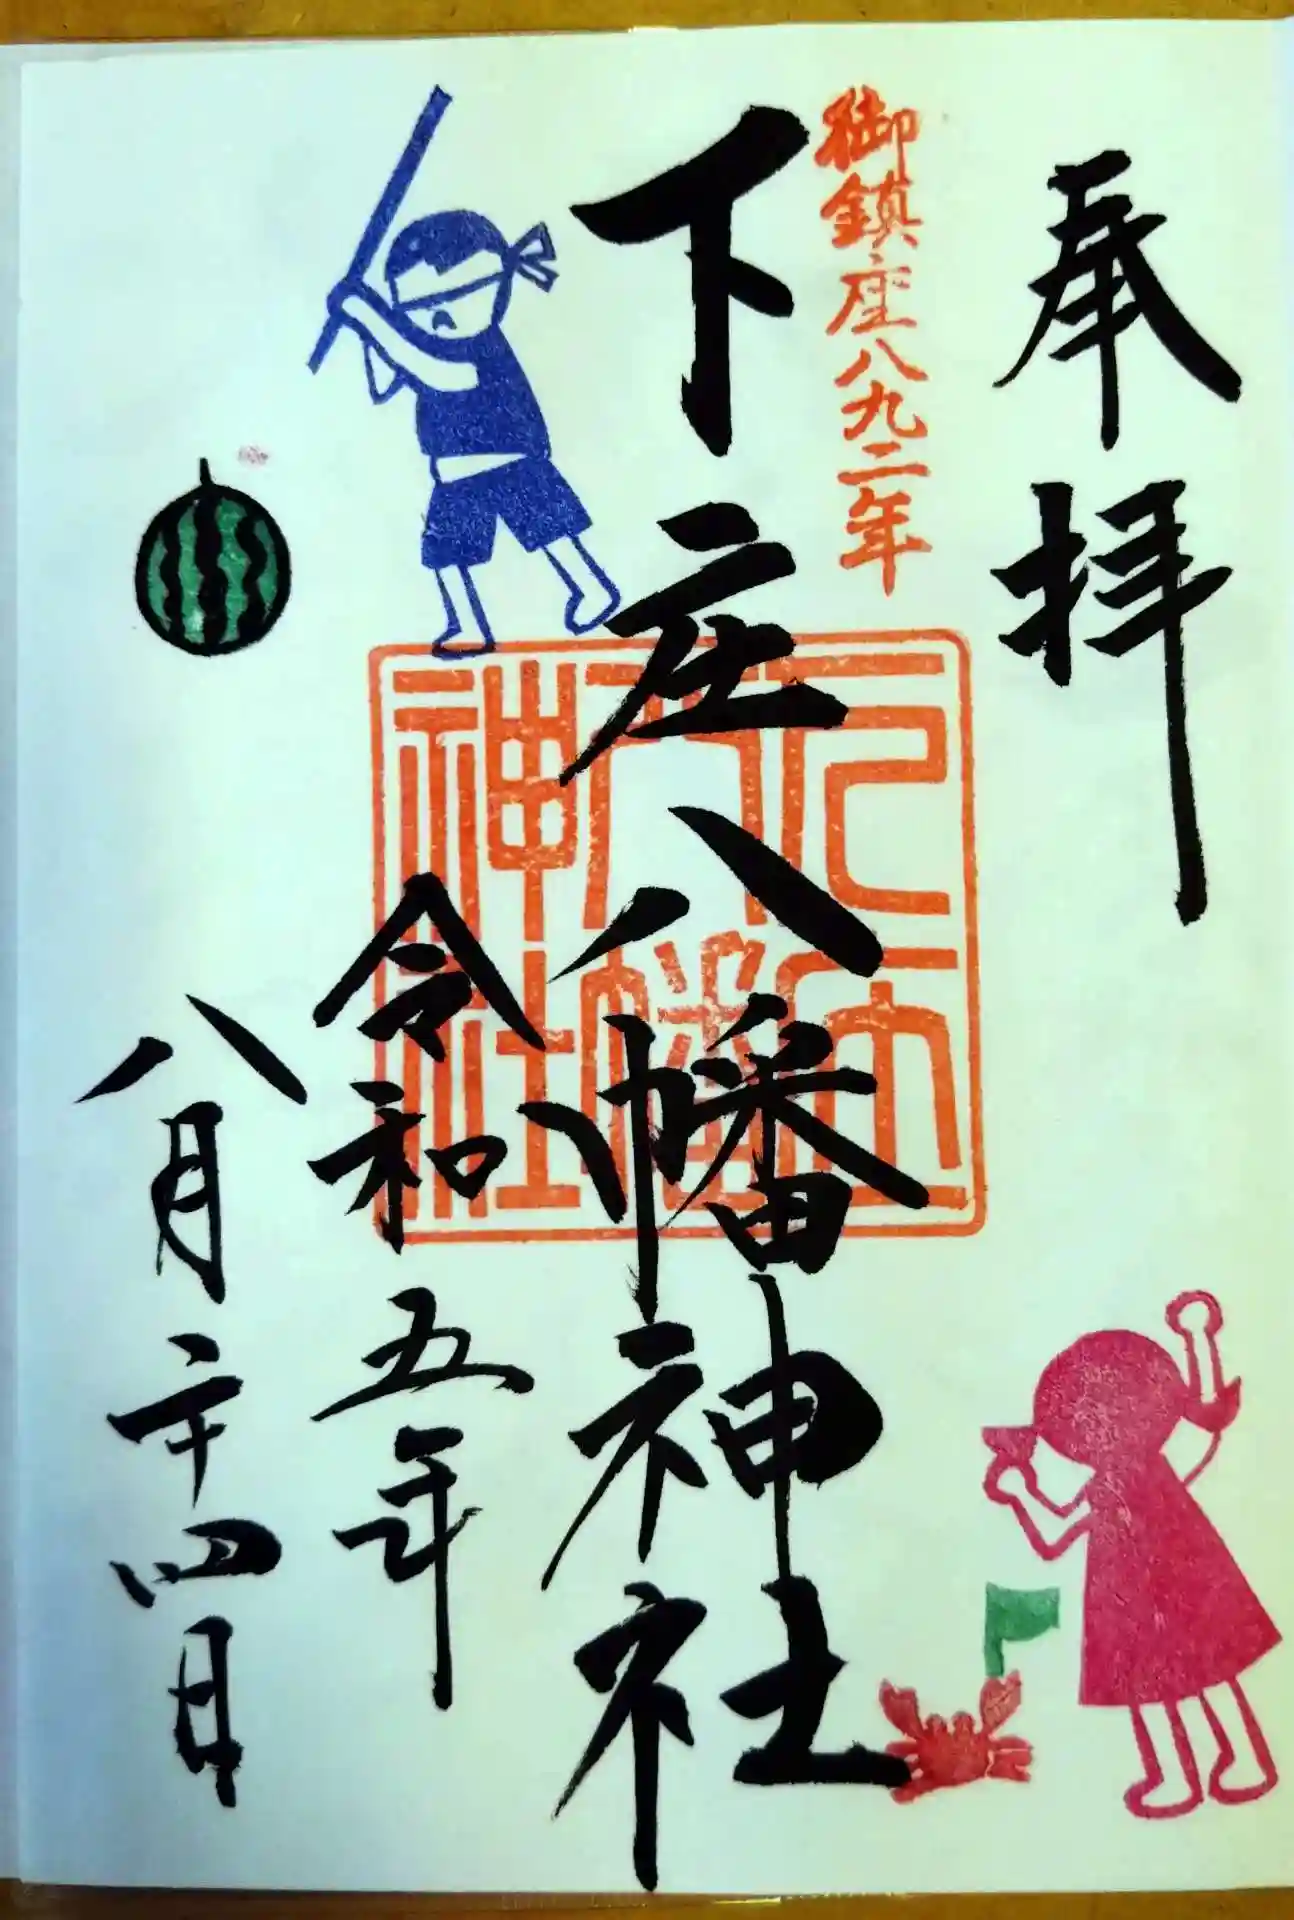 奉拝
御鎮座八九二年
下庄八幡神社
下庄八幡神社
令和五年
八月二十四日